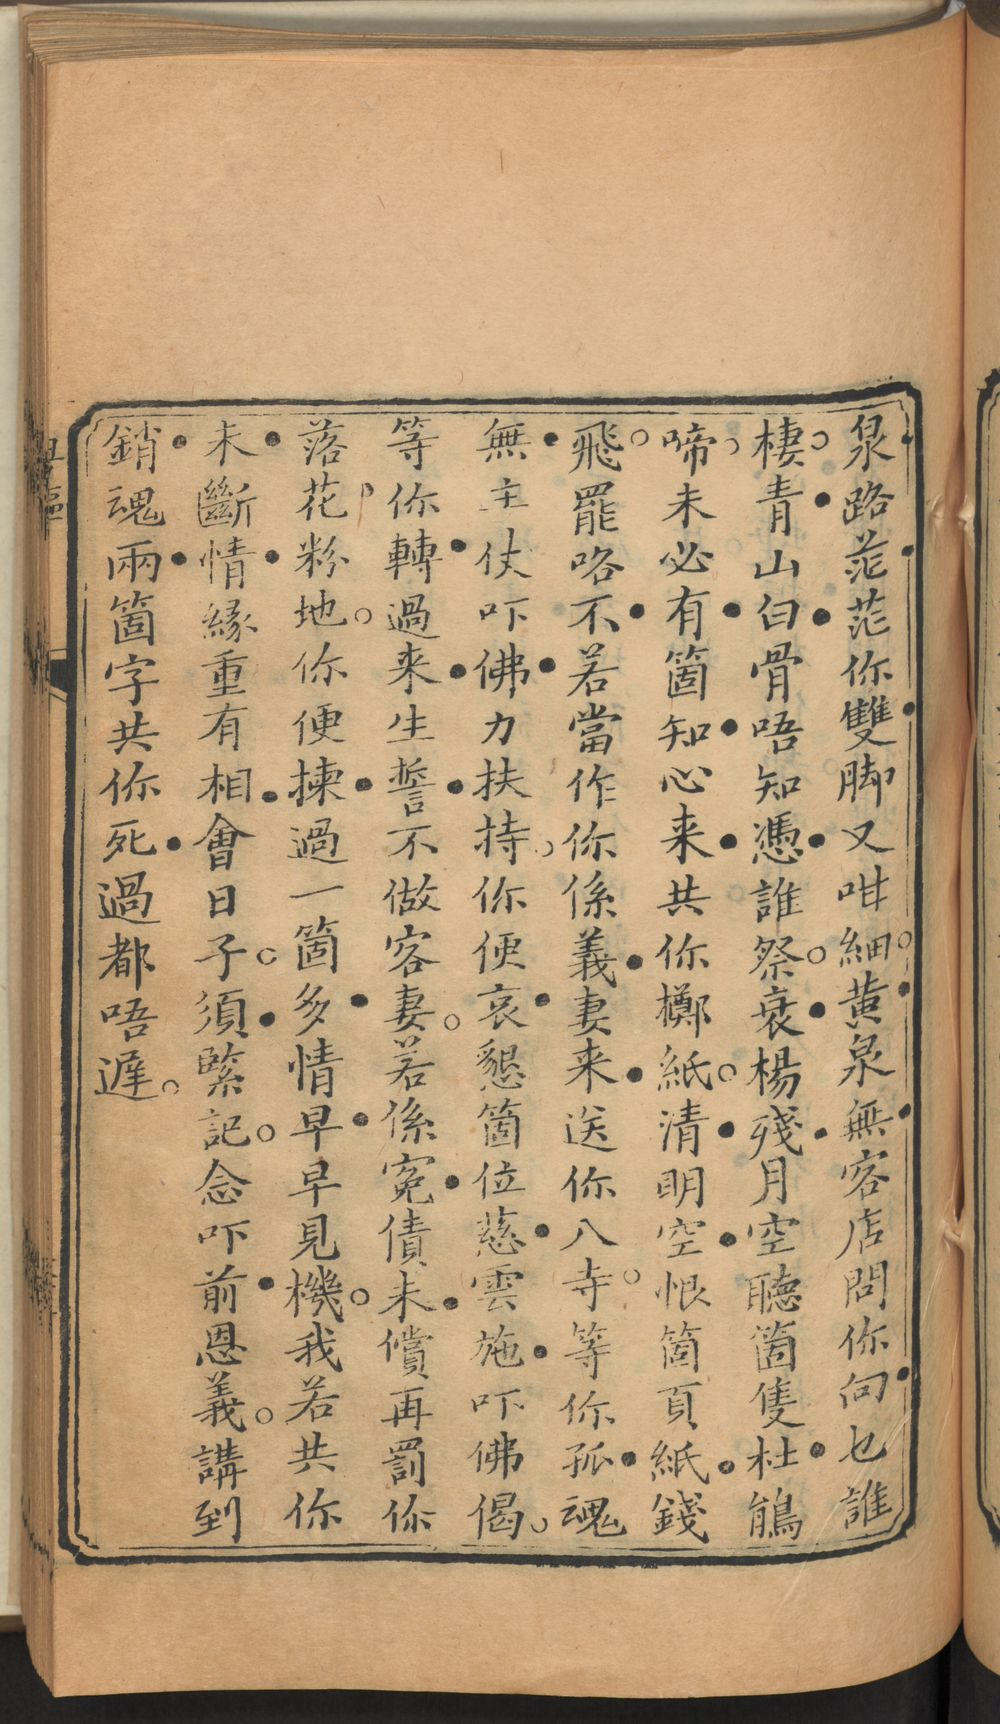 泉路茫茫你雙脚又咁細黃泉無客店問你向乜誰
棲青山白骨唔知憑誰祭衰楊殘月空聽箇隻杜鵑
啼未必有箇知心来共你擲紙清明空恨箇頁紙錢
飛罷咯不若當作你係義妻来送你入寺等你孤魂
無主仗吓佛力扶持你便哀懇箇位慈雲施吓佛偈
等你轉過来生誓不做客妻若係冤債未償再罰你
落花粉地你便揀過一箇多情早早見機我若共你
未斷情緣重有相會日子須緊記念吓前恩義講到
銷魂兩箇字共你死過都唔遲